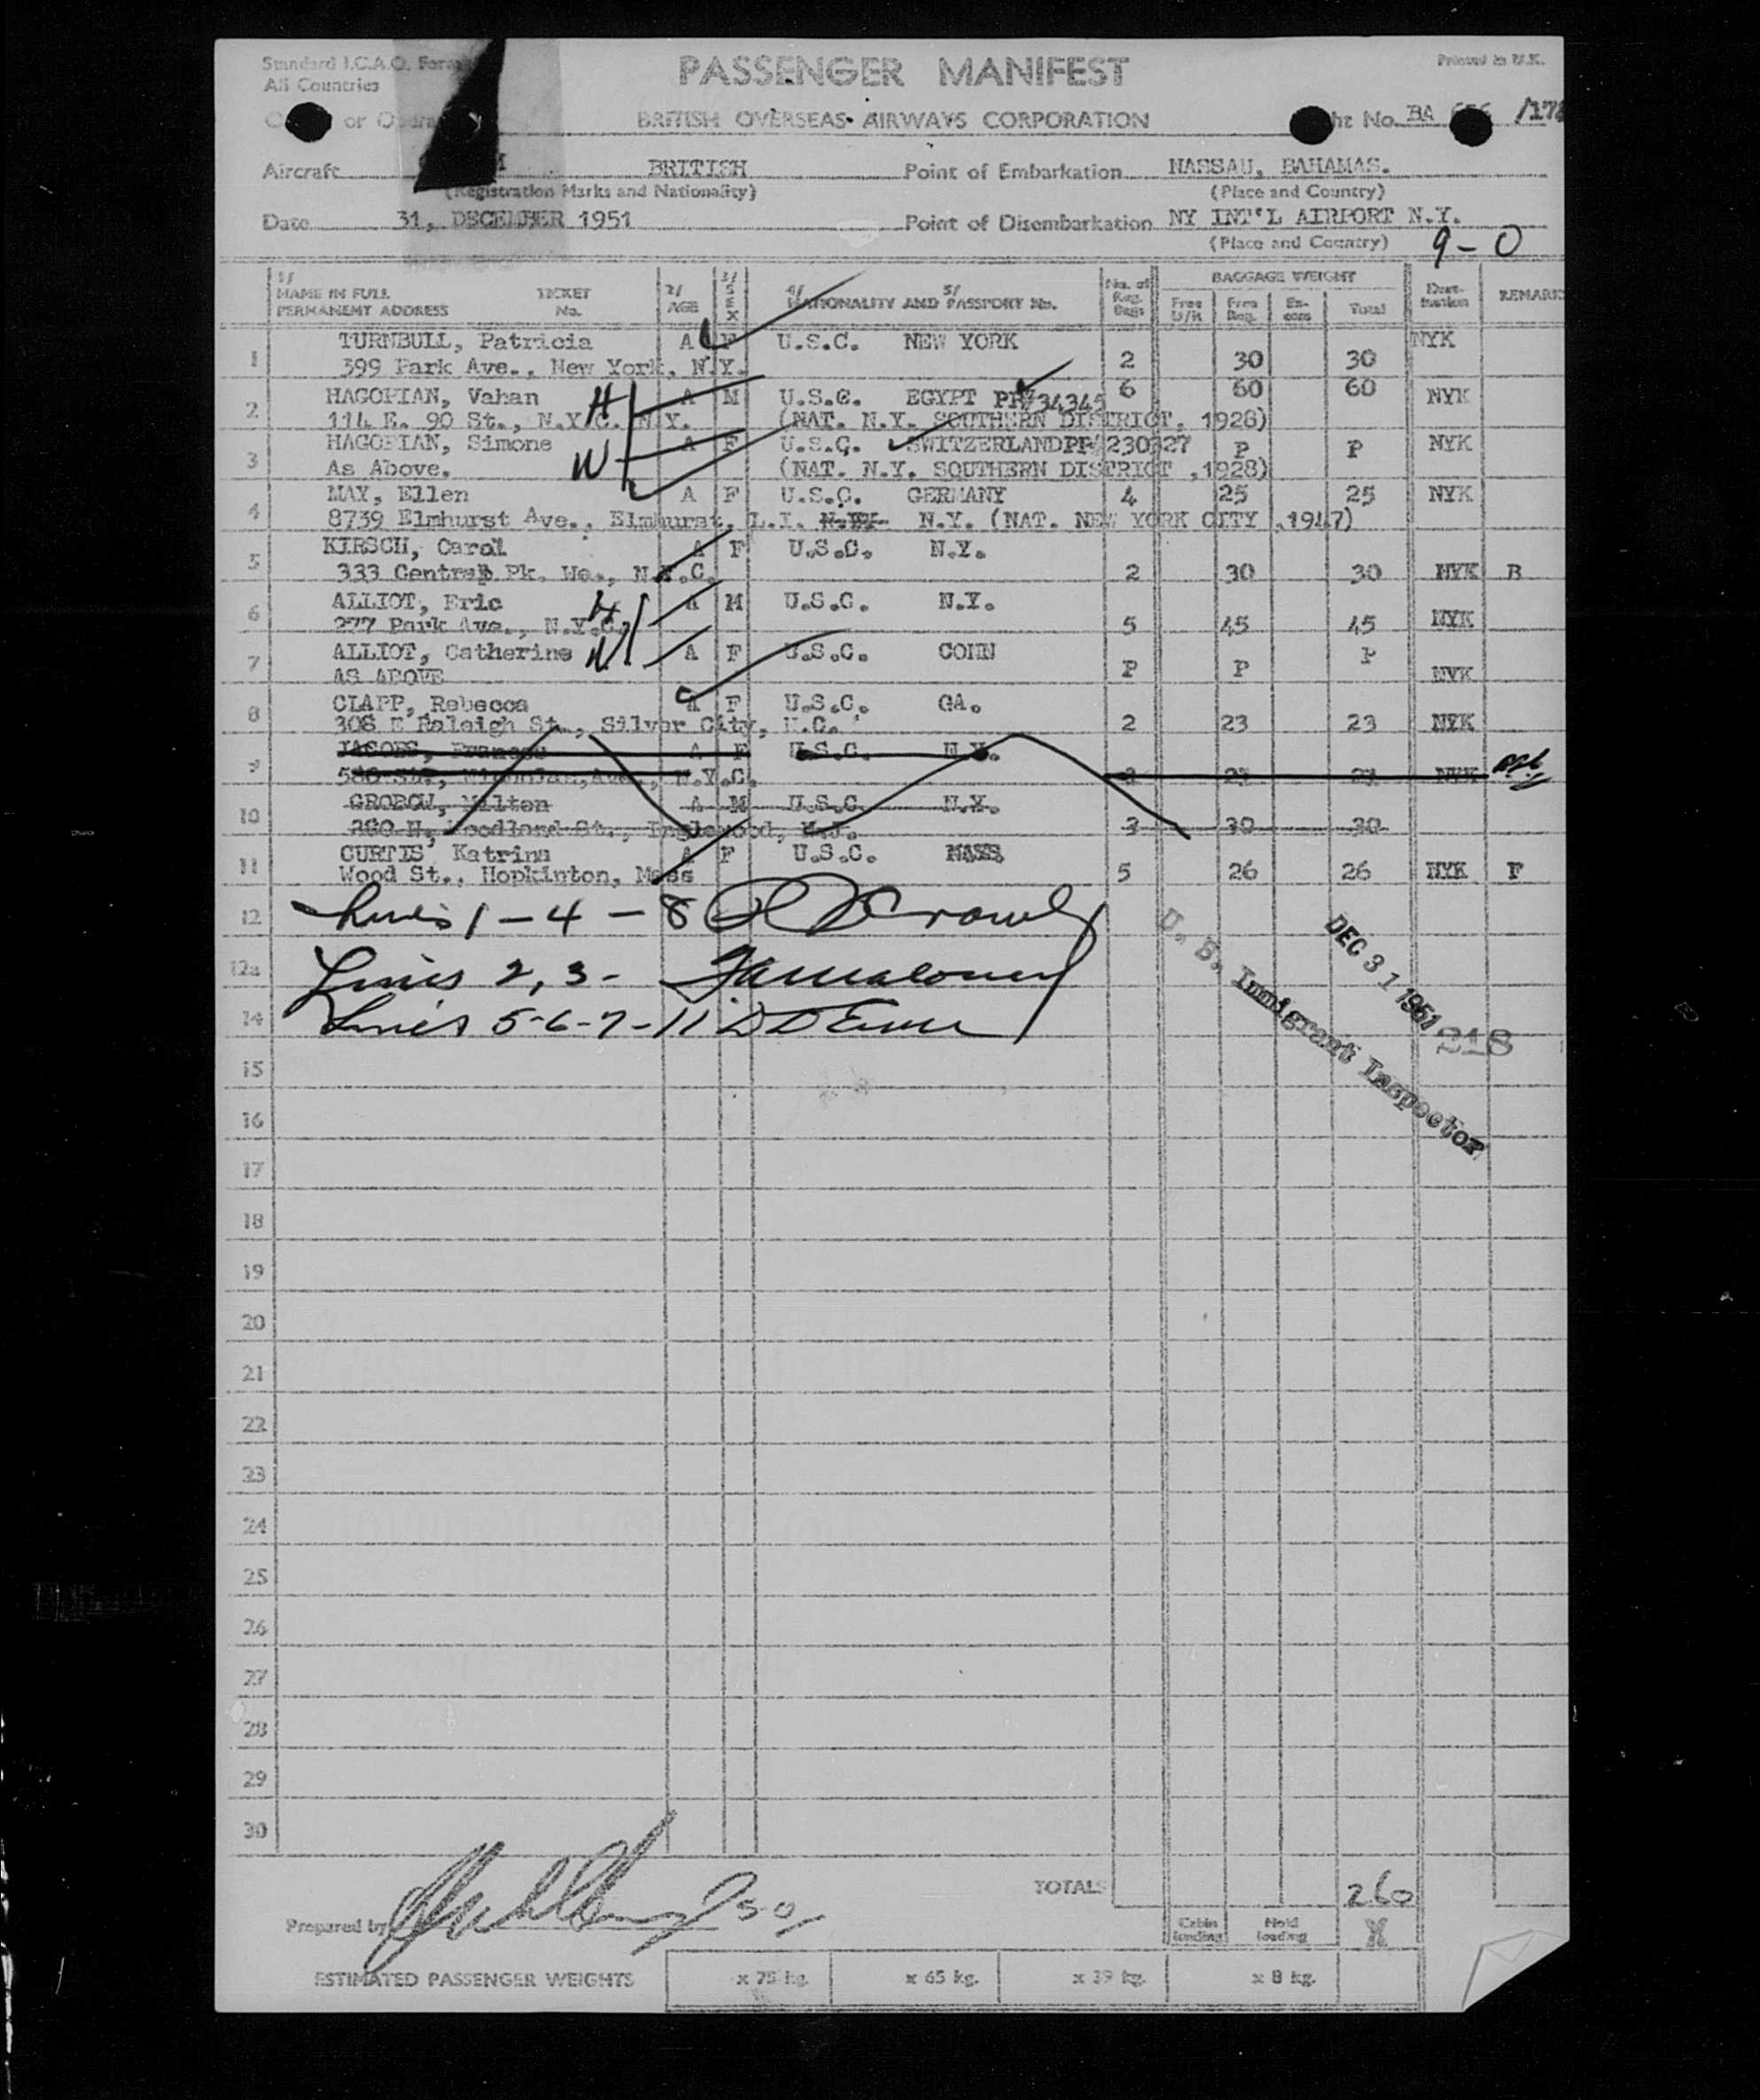 Standard I.C.A.O. Form
All Countries
PASSENGER MANIFEST
Printed in U.K.
or
BRITISH OVERSEAS AIRWAYS CORPORATION
No. BA /171
Aircraft BRITISH Point of Embarkation NASSAU, BAHAMAS.
(Registration Marks and Nationality) (Place and Country)
Date 31, DECEMBER 1951 Point of Disembarkation NY INT'L AIRPORT N.Y.
(Place and Country) 9-0
1/ NAME IN FULL PERMANENT ADDRESS TICKET No. 2/ AGE 3/ SEX 4/ NATIONALITY AND 5/ PASSPORT No. No. of Bags BAGGAGE WEIGHT Free Free Total REMARK
1 TURNBULL, Patricia A F U.S.C. NEW YORK NYK
399 Park Ave., New York, N.Y. 2 30 30
2 HAGOPIAN, Vahan H A M U.S.C. EGYPT PP# 34345 6 60 60 NYK
114 E. 90 St., N.Y.C. N.Y. (NAT. N.Y. SOUTHERN DISTRICT, 1928)
3 HAGOPIAN, Simone W A F U.S.C. SWITZERLAND PP# 230327 P P NYK
As Above. (NAT. N.Y. SOUTHERN DISTRICT ,1928)
4 MAY, Ellen A F U.S.C. GERMANY 4 25 25 NYK
8739 Elmhurst Ave., Elmhurst, L.I. N.Y. (NAT. NEW YORK CITY ,1947)
5 KIRSCH, Carol A F U.S.C. N.Y.
333 Central Pk. We., N.Y.C. 2 30 30 NYK B
6 ALLIOT, Eric H A M U.S.C. N.Y.
277 Park Ave., N.Y.C. 5 45 45 NYK
7 ALLIOT, Catherine W A F U.S.C. CONN P
AS ABOVE P P NYK
8 CLAPP, Rebecca A F U.S.C. GA.
308 E Raleigh St., Silver City, N.C. 2 23 23 NYK
9 JACOBS, A F U.S.C. N.Y.
N.Y.C. NYK
10 GROBOW, Milton A M U.S.C. N.Y.
Woodland St., Inglewood, N.J. 3 30 30
11 CURTIS, Katrina A F U.S.C. MASS
Wood St., Hopkinton, Mass 5 26 26 NYK F
12 Lines 1-4-8
12a Lines 2,3-
14 Lines 5-6-7-11
U. S. Immigrant Inspector
DEC 31 1951
218
15
16
17
18
19
20
21
22
23
24
25
26
27
28
29
30
TOTALS 260
Prepared by
Cabin loading Hold loading
ESTIMATED PASSENGER WEIGHTS x 75 kg. x 65 kg. x 39 kg. x 8 kg.